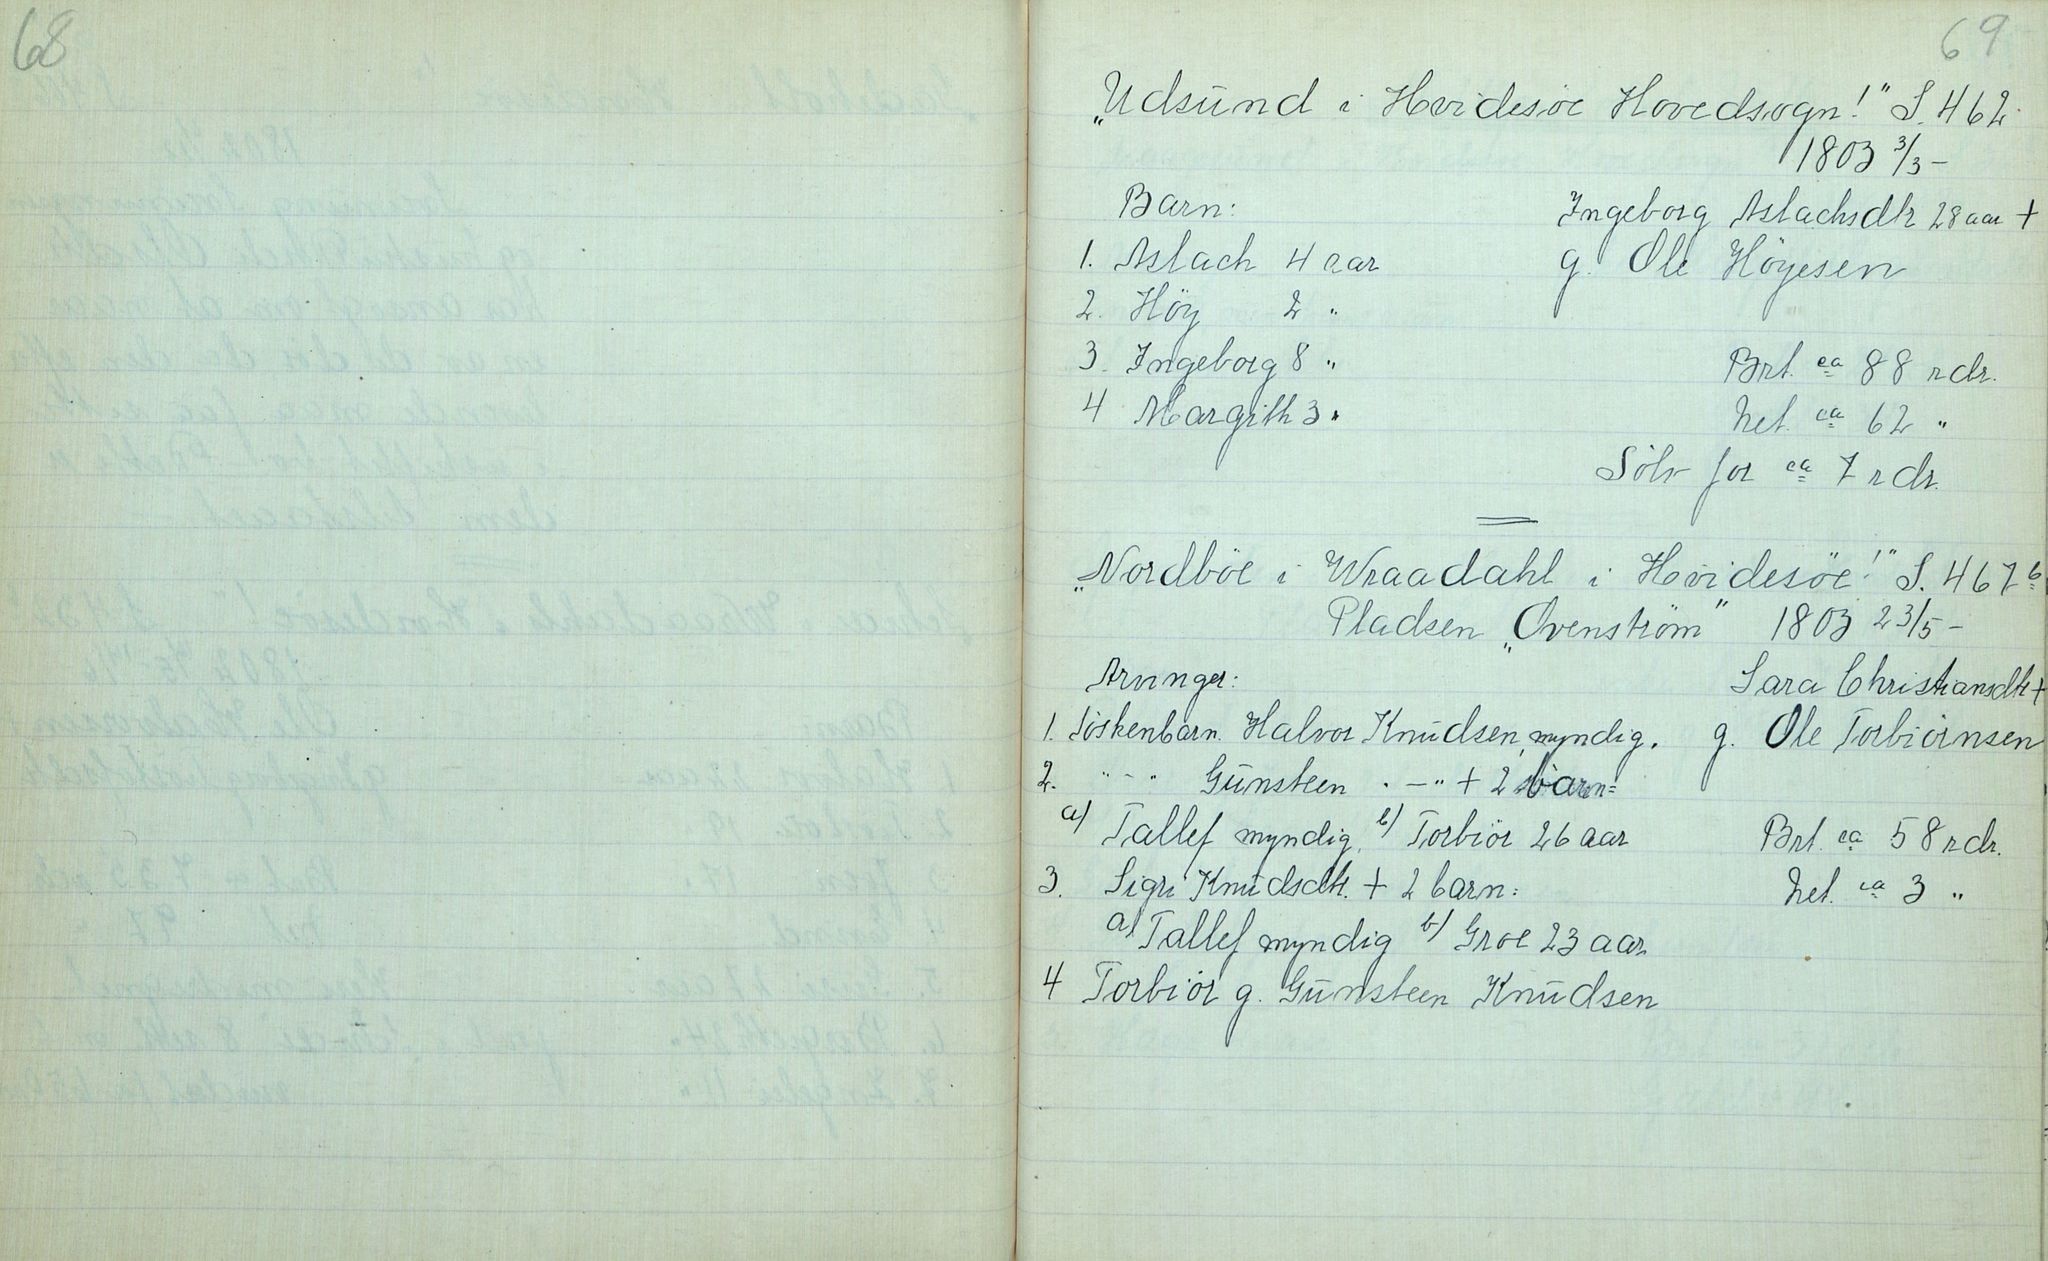 68
69
„Udsund i Hvidesøe Hovedsogn!" S. 462
1803 3/3 –
Barn: Ingeborg Aslachsdtr 28 aar +
1. Aslach 4 aar g. Ole Höyesen
2. Höy 2 "
3. Ingeborg 8 " Brt. ca 88 rdr.
4 Margith 3 " Net. ca 62 "
Sölv for ca 7 rdr.
„Nordböe i Wraadahl i Hvidesöe!" S. 467b
Pladsen „Ovenström" 1803 23/5 –
Arvinger: Sara Christiansdtr +
1. Söskenbarn Halvor Knudsen, myndig. g. Ole Torbiörnsen
2. " - " Gunsteen " – " + 2 barn:
a) Tallef myndig, b) Torbiör 26 aar Brt. ca 58 rdr.
3. Sigri Knudsdtr. + 2 barn: Net. ca 3 "
a) Tallef myndig b) Groe 23 aar
4 Torbiör g. Gunsteen Knudsen